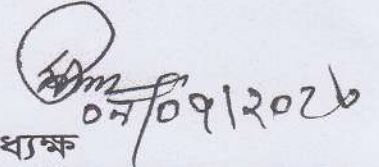 ০৯/০৭/২০২৬
ধ্যক্ষ